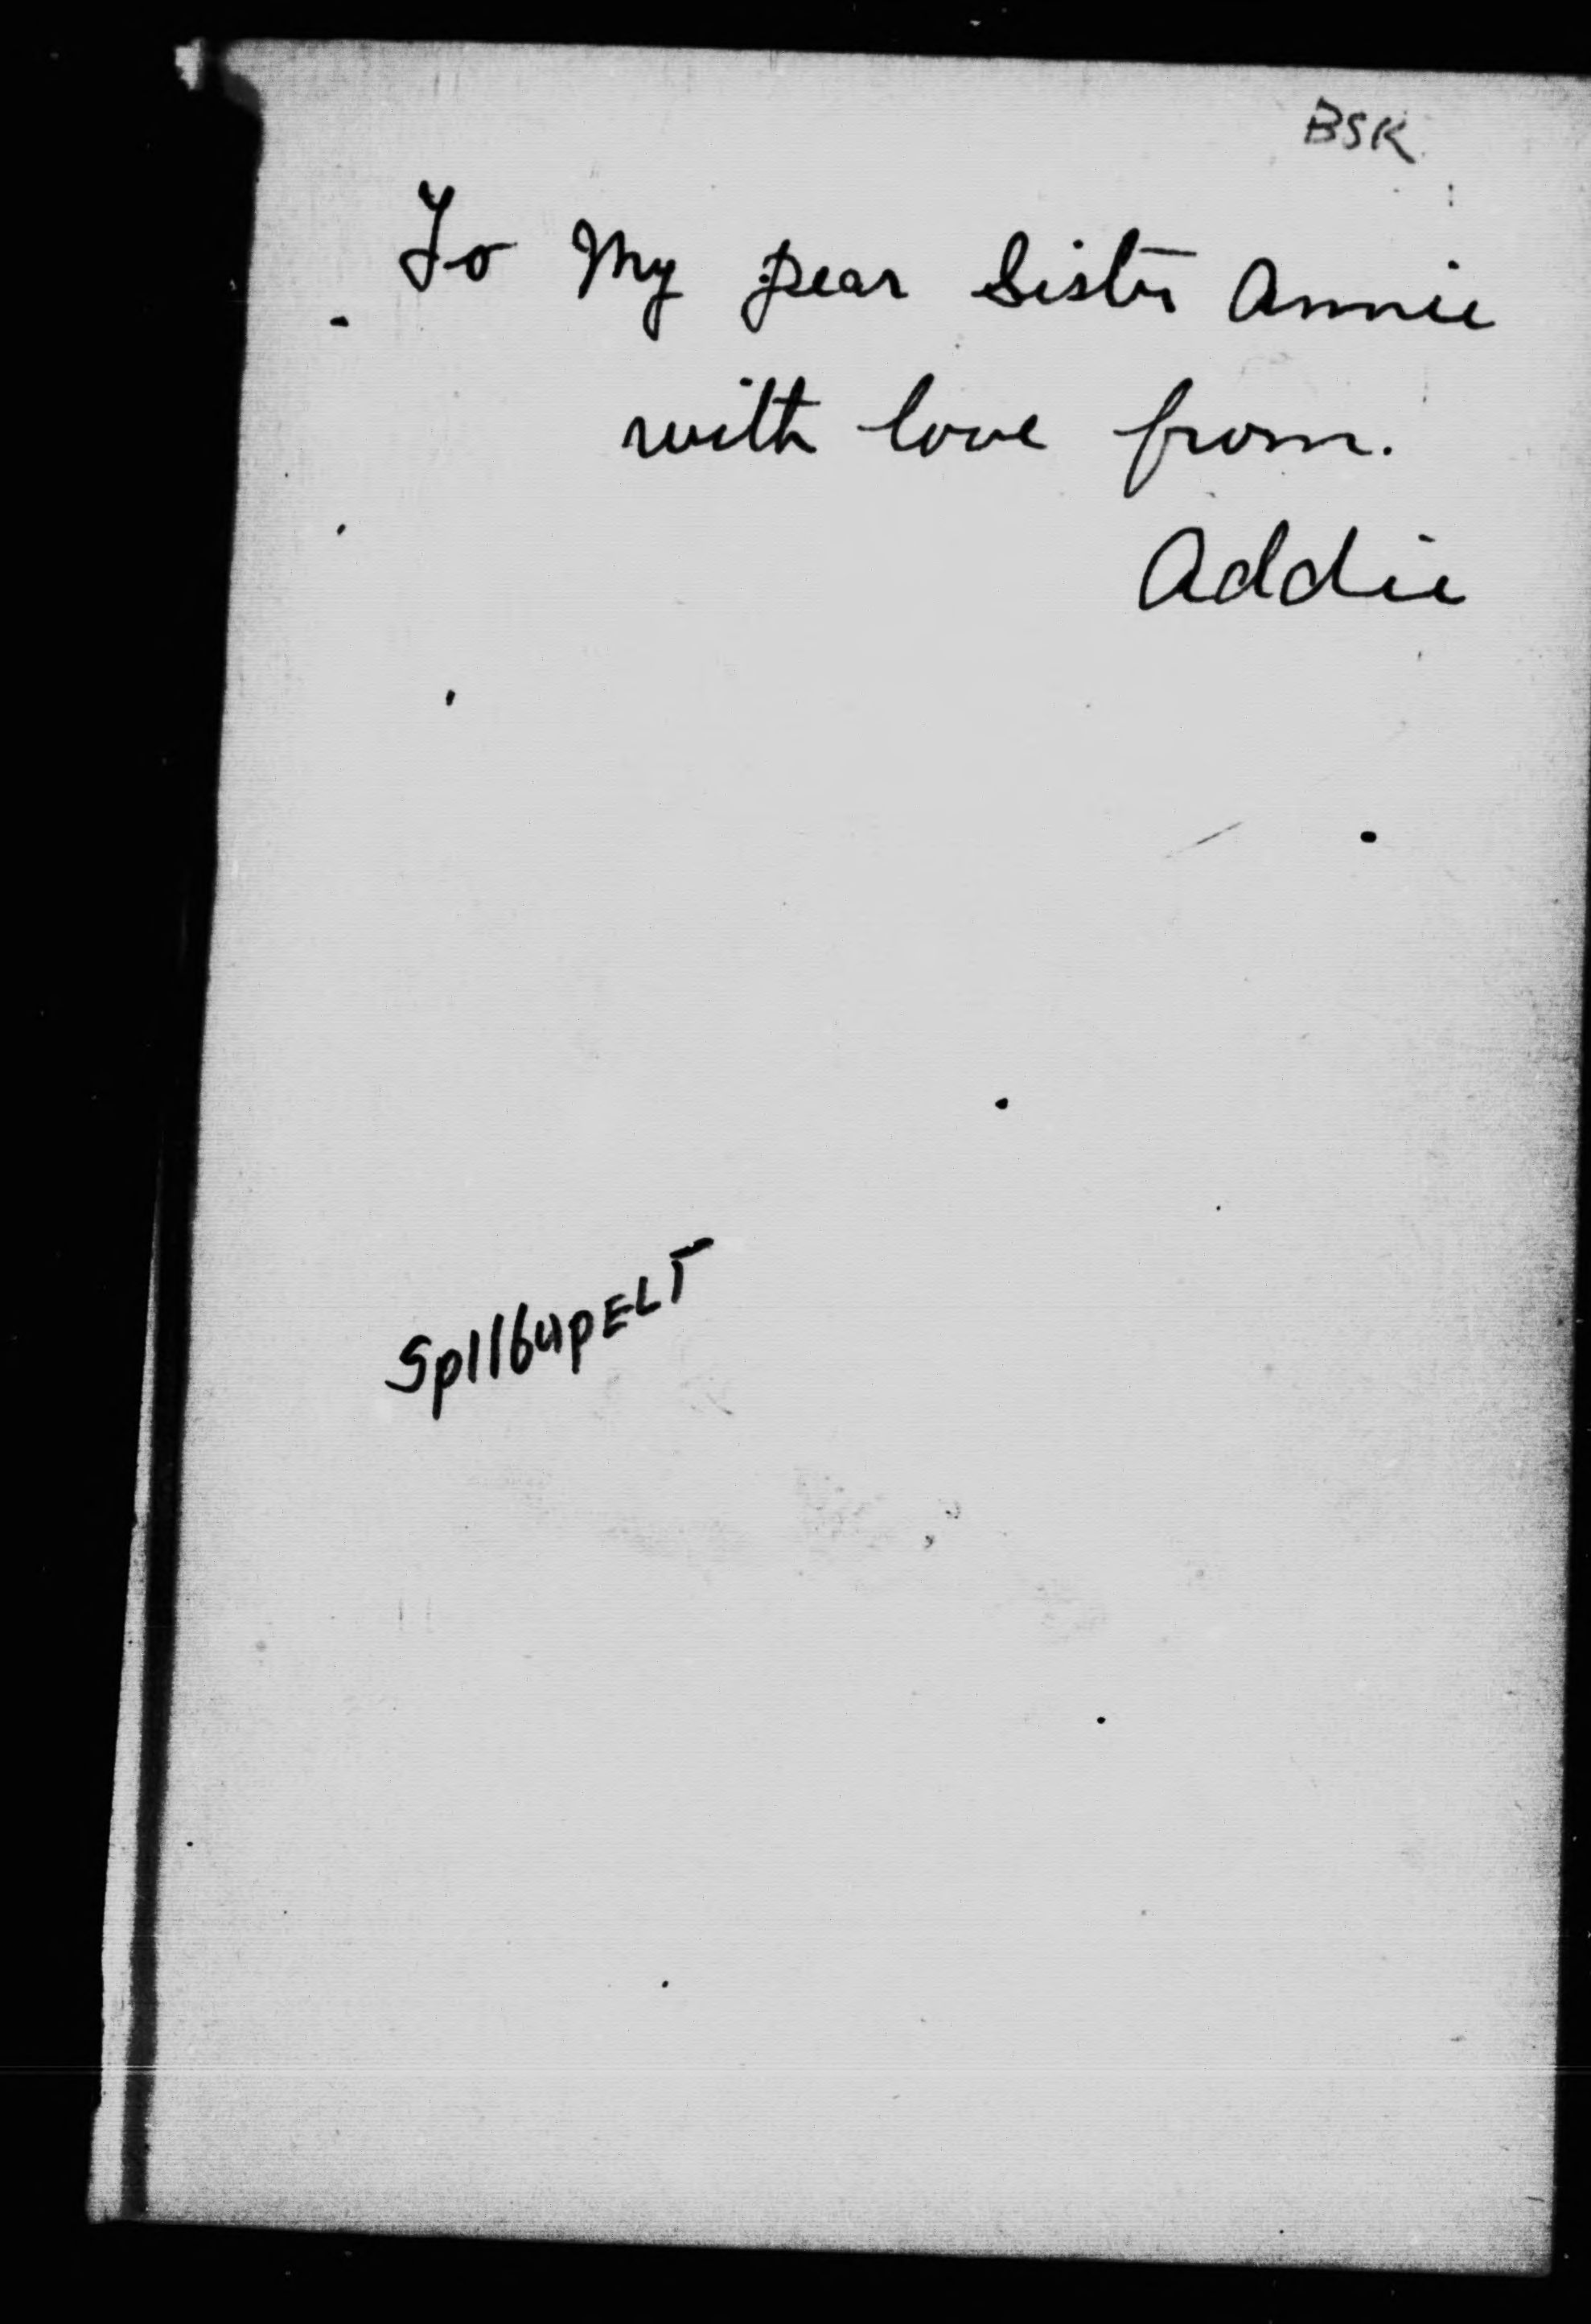 BSK
To My Dear Sister Annie
with love from.
Addie